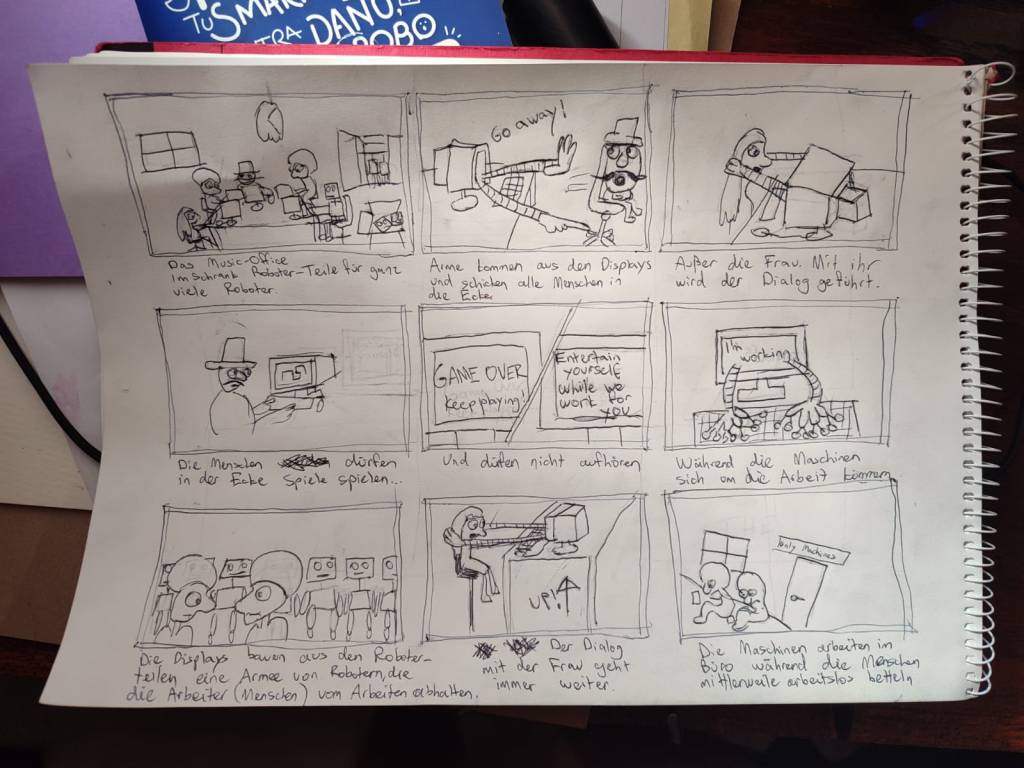 TU SMAR
TRA DAÑO,
ROBO
Das Music-Office
im Schrank Roboter-Teile für ganz
viele Roboter.
Go away!
Arme kommen aus den Displays
und schicken alle Menschen in
die Ecke
Außer die Frau. Mit ihr
wird der Dialog geführt.
Die Menschen dürfen
in der Ecke Spiele spielen...
GAME OVER
keep playing!
Entertain
yourself
while we
work for
you
Und dürfen nicht aufhören
I'm
working
Während die Maschinen
sich om die Arbeit kömmern
Die Displays bauen aus den Roboter-
teilen eine Armee von Robotern, die
die Arbeiter (Menschen) vom Arbeiten abhalten.
UP!
Der Dialog
mit der Frau geht
immer weiter.
Only Machines
Die Maschinen arbeiten im
Büro während die Menschen
mittlerweile arbeitslos betteln